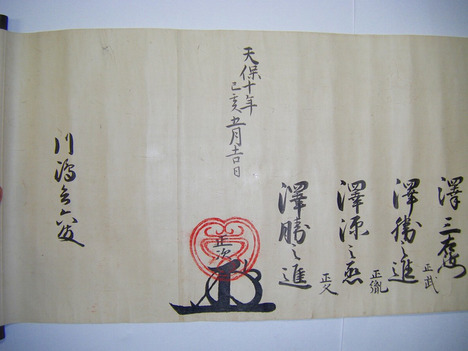 澤三
正武
澤勝之進
正胤
澤源之丞
正久
澤勝之進
正次
天保十年
己亥五月吉日
川
殿